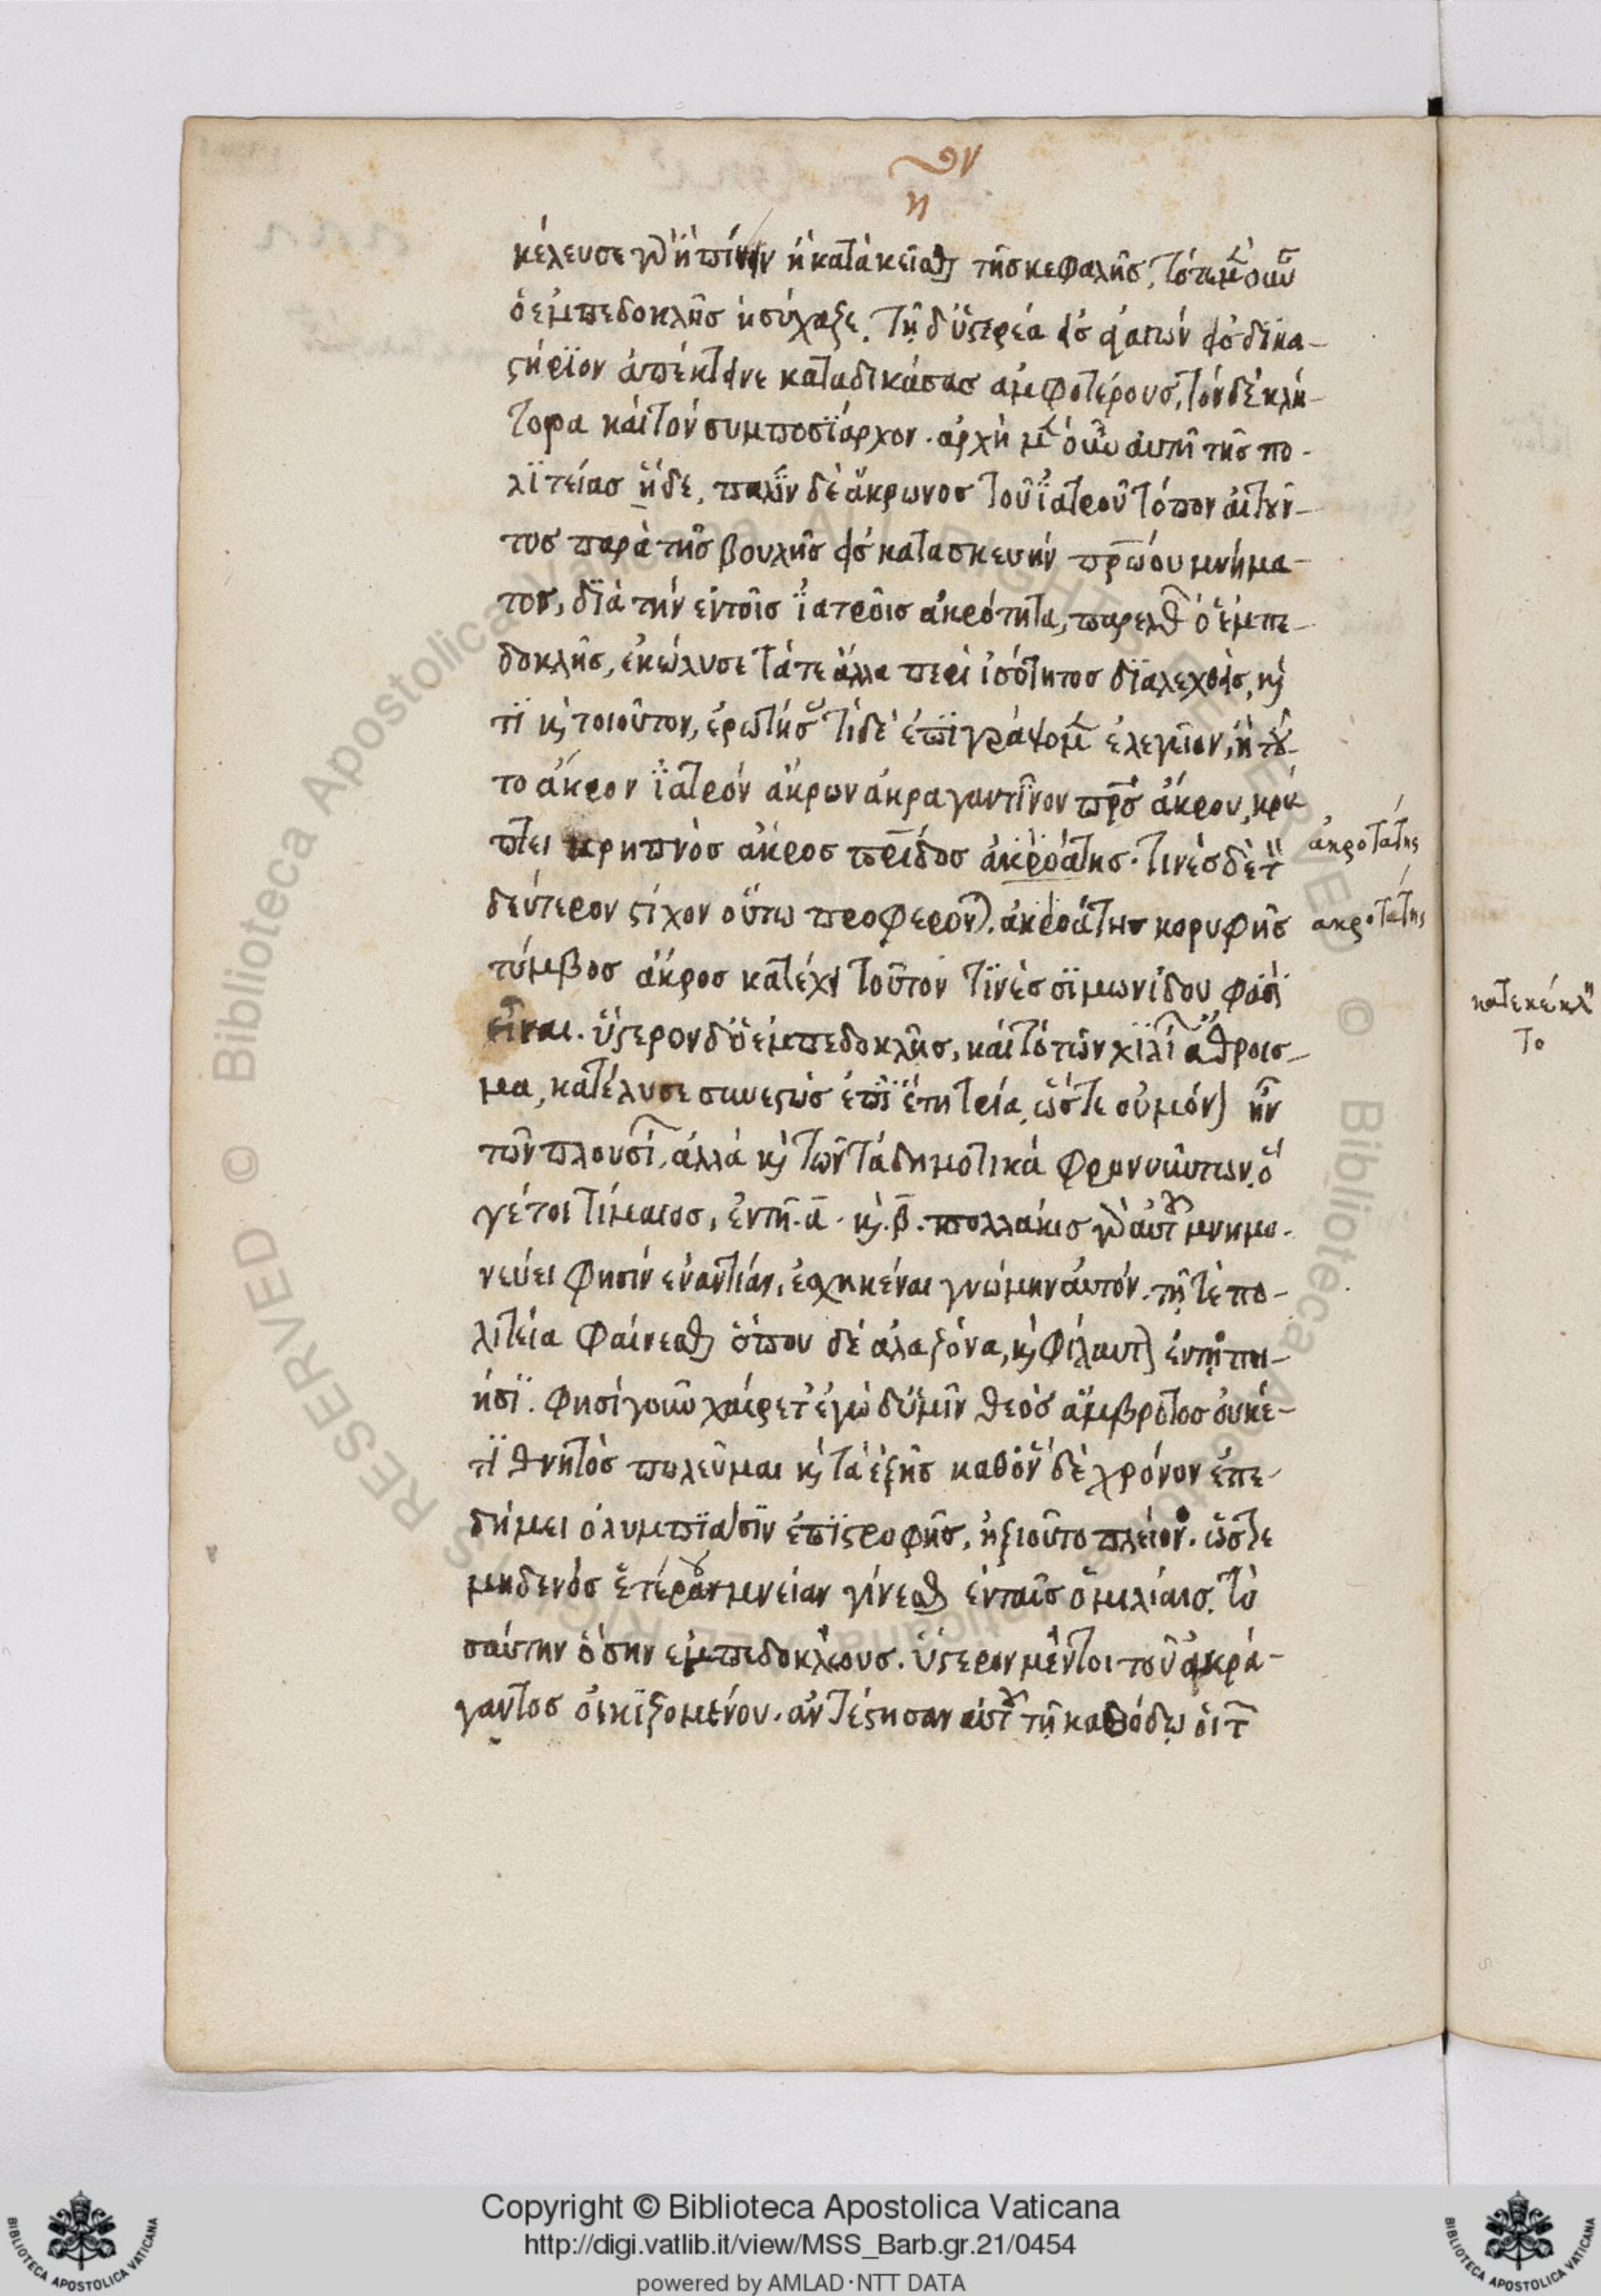 ον
η
κέλευσε γὰρ ἢ πίνειν ἢ κατακεῖσθαι τῆς κεφαλῆς, τότε μὲν οὖν
ὁ ἐμπεδοκλῆς ἡσύχαζε. τῇ δ' ὑστερέα εἰς ἀγαγὼν εἰς δικα-
στήριον ἀπέκτεινε καταδικάσας ἀμφοτέρους, τόν δὲ κλή-
τορα καὶ τὸν συμποσϊάρχον. ἀρχὴ μὲν οὖν αὐτῆ τῆς πο-
λϊτείας ἥδε, παλϊν δὲ ἄκρωνος τοῦ ϊατροῦ τόπον αἰτοῦν-
τος παρὰ τῆς βουλῆς εἰς κατασκευὴν πρώου μνήμα-
τος, δϊὰ τὴν ἐντοῖς ϊατροῖς ἀκρότητα, παρελθὼν ὁ ἐμπε-
δοκλῆς, ἐκώλυσε τά τε ἄλλα περὶ ἰσότητος δϊαλεχθεὶς, καὶ
τϊ καὶ τοιοῦτον, ἐρωτήσας τί δὲ ἐπϊγράψομεν ἐλεγεῖον, ἢ τοῦ-
το ἄκρον ϊατρόν ἄκρων ἀκραγαντῖνον πρς ἄκρου, κρύ
πτει κρημνὸς ἄκρος πρίδος ἀκροάτης. τινὲς δὲ τὸν
δεύτερον στίχον οὕτω προφέρονται. ἀκροάτης κορυφῆς
τύμβος ἄκρος κατέχει τοῦτον τϊνὲς σϊμωνίδου φασϊ
εἶναι. ὕστερον δ' ὁ ἐμπεδοκλῆς, καὶ τὸ τῶν χϊλίων ἄθροισ-
μα, κατέλυσε συνεστὼς ἐπϊ ἔτη τρία, ὥστε οὐ μόνον ἦν
τῶν πλουσίων, ἀλλὰ καὶ τῶν τὰ δημοτικὰ φρονούντων. ὅ
γέ τοι τίμαιος, ἐν τῇ. α. καὶ. β. πολλάκις γὰρ αὐτοῦ μνημο-
νεύει φησὶν ἐναντίαν, ἐσχηκέναι γνώμην αὐτόν. τῇ τε πο-
λιτεία φαίνεσθαι ὅπου δὲ ἀλαζόνα, καὶ φίλαυτον ἐν τῇ ποι-
ήσϊ. φησὶ γοῦν χαίρετ' ἐγὼ δ' ὑμῖν θεὸς ἄμβροτος οὐκέ-
τϊ θνητὸς πωλεῦμαι καὶ τὰ ἑξῆς καθ' ὃν δὲ χρόνον ἐπε-
δήμει ὀλυμπϊασϊν ἐπϊστροφῆς, ἠξιοῦτο πλείον. ὥστε
μηδενὸς ἑτέρου μνείαν γίνεσθαι ἐν ταῖς ὁμιλίαις. το
σαύτην ὅσην ἐμπεδοκλέους. ὕστερον μέντοι τοῦ ἀκρά-
γαντος οἰκϊζομένου. ἀντέστησαν αὐτοῦ τῇ καθόδῳ οἱ τῶν
ἀκροτάτης
ἀκροτάτης
κατεκέκλη
το
Copyright © Biblioteca Apostolica Vaticana
http://digi.vatlib.it/view/MSS_Barb.gr.21/0454
powered by AMLAD·NTT DATA